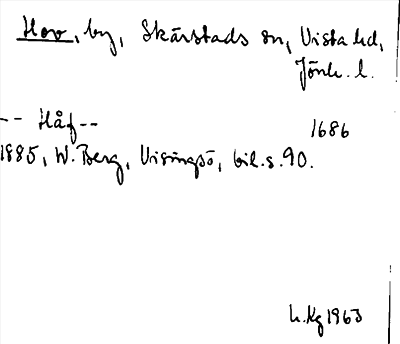 Hov, by, Skärstads sn, Vista hd,
Jönk. l.
-- Håf -- 1686
1885, W. Berg, Visingsö, bil. s. 90.
h. Kg 1963